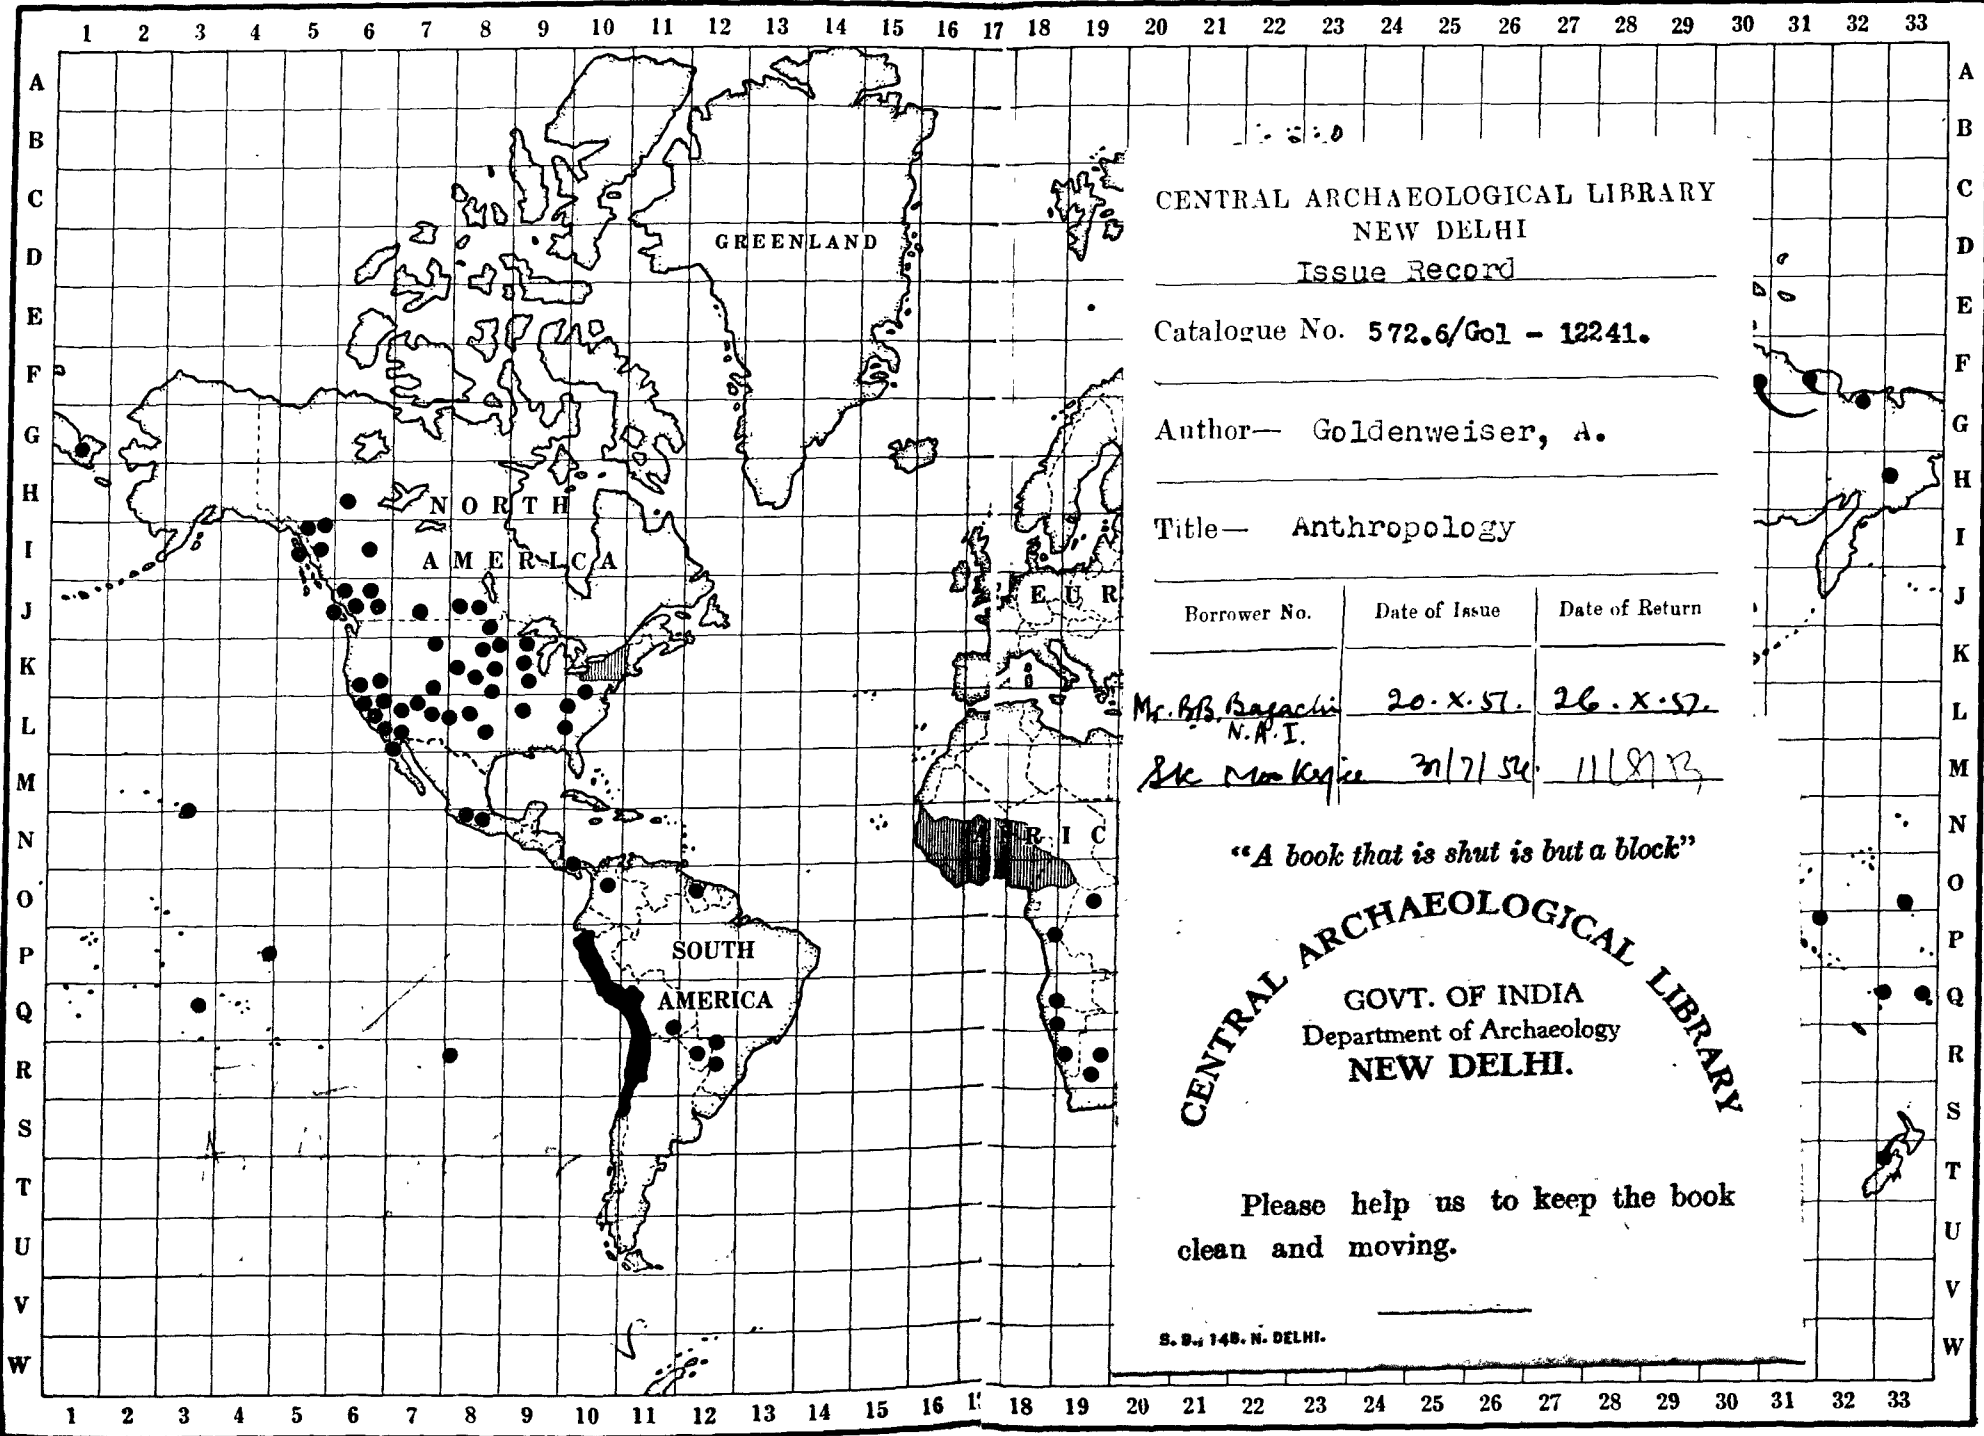 1 2 3 4 5 6 7 8 9 10 11 12 13 14 15 16 17 18 19 20 21 22 23 24 25 26 27 28 29 30 31 32 33
A A
B B
C C
D D
E E
F F
G G
H H
I I
J J
K K
L L
M M
N N
O O
P P
Q Q
R R
S S
T T
U U
V V
W W
GREENLAND
NORTH
AMERICA
SOUTH
AMERICA
EUR
RIC
CENTRAL ARCHAEOLOGICAL LIBRARY
NEW DELHI
Issue Record
Catalogue No. 572.6/Gol - 12241.
Author— Goldenweiser, A.
Title— Anthropology
Borrower No. Date of Issue Date of Return
Mr. B.B. Bagachi 20.X.57. 26.X.57.
N.A.I.
SK 31/7/54
"A book that is shut is but a block"
CENTRAL ARCHAEOLOGICAL LIBRARY
GOVT. OF INDIA
Department of Archaeology
NEW DELHI.
Please help us to keep the book
clean and moving.
S. B., 148. N. DELHI.
1 2 3 4 5 6 7 8 9 10 11 12 13 14 15 16 18 19 20 21 22 23 24 25 26 27 28 29 30 31 32 33